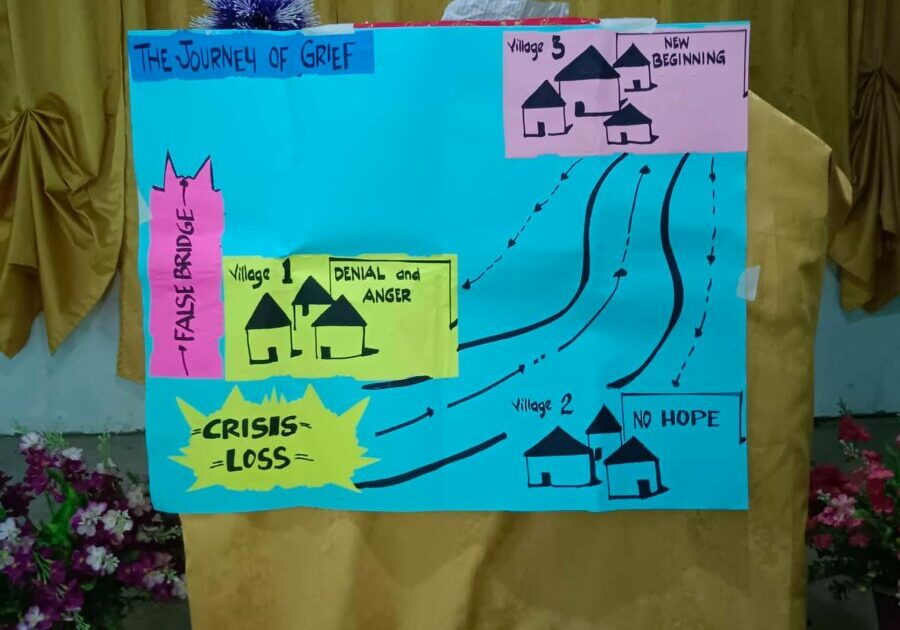 THE JOURNEY OF GRIEF
Village 3
NEW
BEGINNING
FALSE BRIDGE
Village 1
DENIAL and
ANGER
CRISIS
LOSS
Village 2
NO HOPE